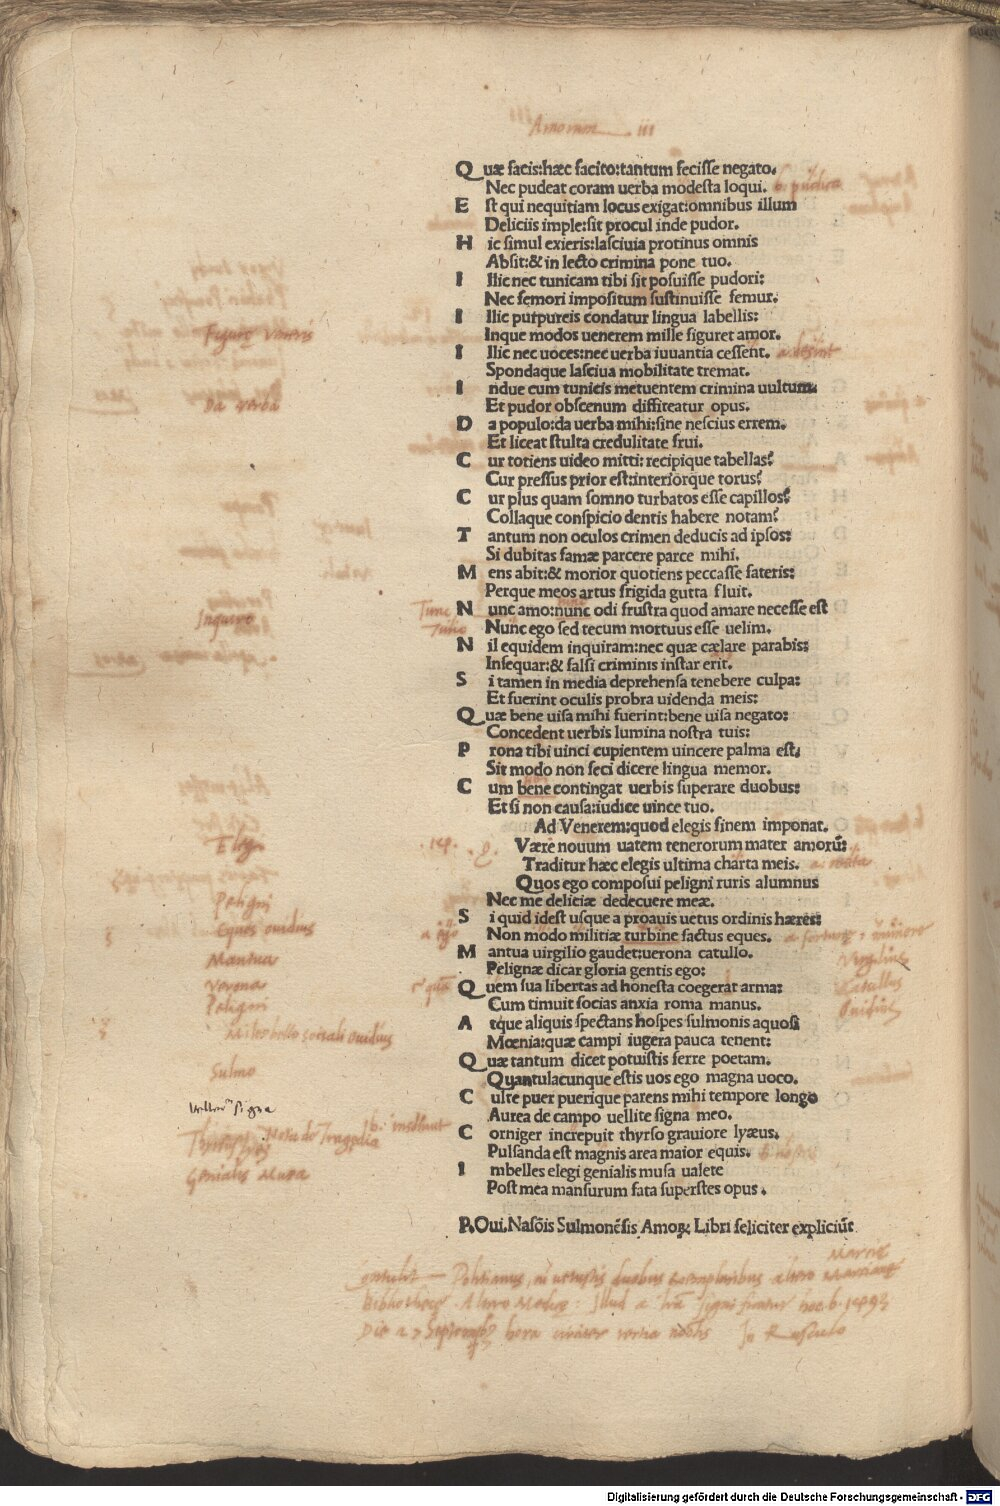 Amorum iii
Quæ facis:hæc facito:tantum fecisse negato.
Nec pudeat coram uerba modesta loqui. b. pudica
Est qui nequitiam locus exigat:omnibus illum
Deliciis imple:sit procul inde pudor.
Hic simul exieris:lasciuia protinus omnis
Absit:& in lecto crimina pone tuo.
Illic nec tunicam tibi sit posuisse pudori:
Nec femori impositum sustinuisse femur.
Illic purpureis condatur lingua labellis:
Figuræ Veneris
Inque modos uenerem mille figuret amor.
Illic nec uoces:nec uerba iuuantia cessent. a. desint
Spondaque lasciua mobilitate tremat.
Indue cum tunicis metuentem crimina uultum.
Da verba
Et pudor obscenum diffiteatur opus.
Da populo:da uerba mihi:sine nescius errem.
Et liceat stulta credulitate frui.
Cur totiens uideo mitti: recipique tabellas?
Cur pressus prior est:interiorque torus?
Cur plus quam somno turbatos esse capillos?
Collaque conspicio dentis habere notam?
Tantum non oculos crimen deducis ad ipsos:
Si dubitas famæ parcere parce mihi.
Mens abit:& morior quotiens peccasse fateris:
Perque meos artus frigida gutta fluit.
Tunc
Nunc amo:nunc odi frustra quod amare necesse est
Nunc ego sed tecum mortuus esse uelim.
Inquiro
Nil equidem inquiram:nec quæ cælare parabis:
Insequar:& falsi criminis instar erit.
Si tamen in media deprehensa tenebere culpa:
Et fuerint oculis probra uidenda meis:
Quæ bene uisa mihi fuerint:bene uisa negato:
Concedent uerbis lumina nostra tuis:
Prona tibi uinci cupientem uincere palma est.
Sit modo non feci dicere lingua memor.
Cum bene contingat uerbis superare duobus:
Et si non causa:iudice uince tuo.
Ad Venerem:quod elegis finem imponat.
Være nouum uatem tenerorum mater amorū:
Traditur hæc elegis ultima charta meis.
Quos ego composui peligni ruris alumnus
Peligni
Nec me deliciæ dedecuere meæ.
Si quid idest usque a proauis uetus ordinis hæres:
Eques ouidius
Non modo militiæ turbine factus eques.
Mantua
Mantua uirgilio gaudet:uerona catullo.
Virgilius
Verona
Pelignæ dicar gloria gentis ego:
Catullus
Peligni
Quem sua libertas ad honesta coegerat arma:
Ouidius
Cum timuit socias anxia roma manus.
Atque aliquis spectans hospes sulmonis aquosi
Mœnia:quæ campi iugera pauca tenent:
Sulmo
Quæ tantum dicet potuistis ferre poetam.
Quantulacunque estis uos ego magna uoco.
Culte puer puerique parens mihi tempore longo
Aurea de campo uellite signa meo.
Corniger increpuit thyrso grauiore lyæus.
Pulsanda est magnis area maior equis.
Genialis Musa
Imbelles elegi genialis musa ualete
Post mea mansurum fata superstes opus.
P.Oui.Nasōis Sulmonēsis Amoꝝ Libri feliciter expliciūt
Digitalisierung gefördert durch die Deutsche Forschungsgemeinschaft - DFG